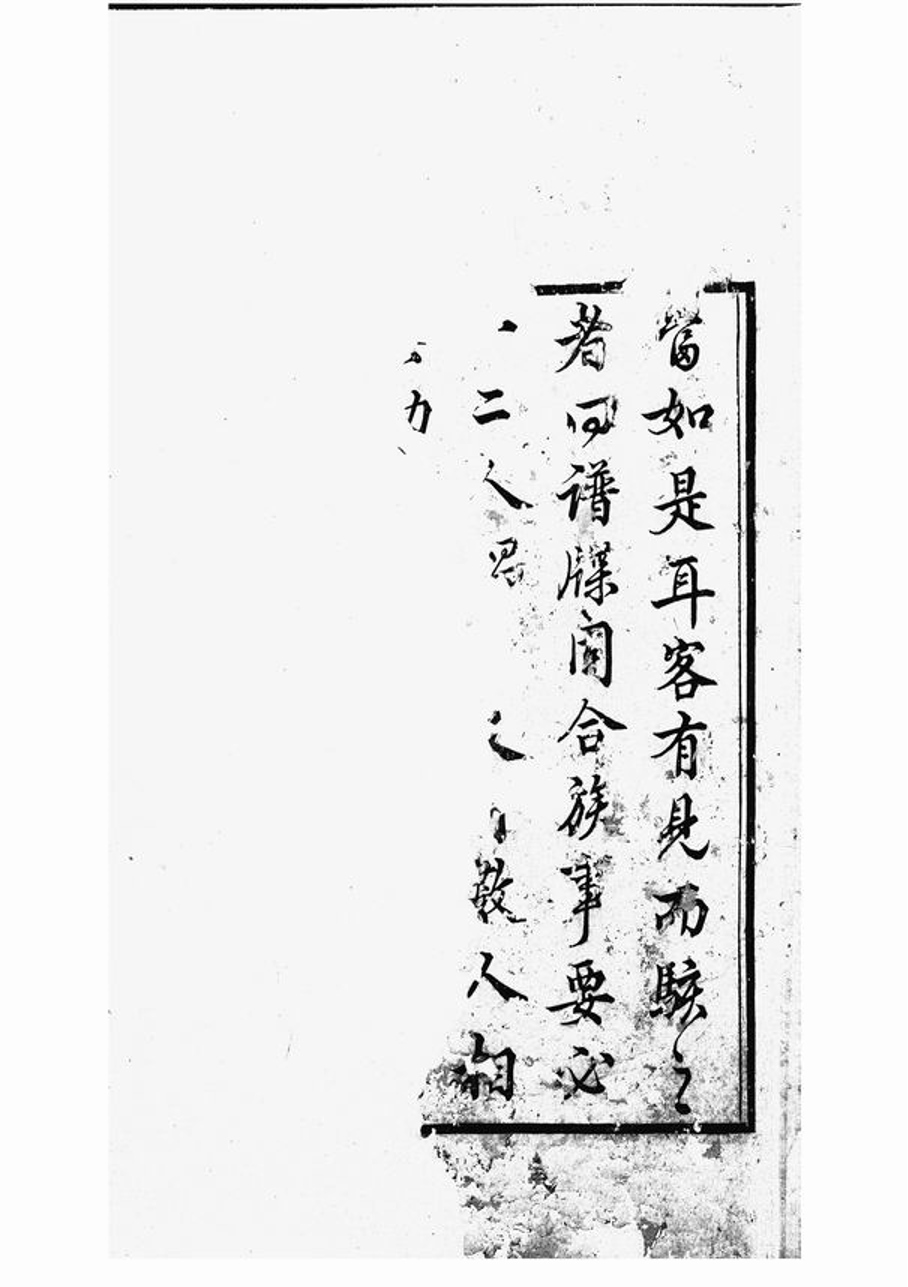 當如是耳客有見而駭之
者曰譜牒闔合族事要必
二人 之 敬人相
力